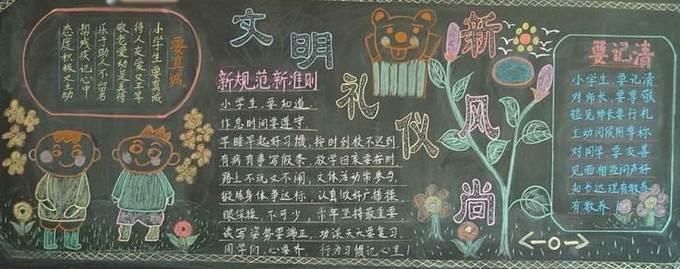 文明礼仪新风尚
要真诚
小学生 要真诚
待人友爱又平等
敬老爱幼是美德
乐于助人不留名
帮残疾记心中
态度积极又主动
新规范新准则
小学生 要知道,
作息时间要遵守,
早睡早起好习惯, 按时到校不迟到
有病有事写假条, 放学回来要各时
路上不玩又不闹, 文体活动常参与,
锻炼身体争达标, 认真做好广播操,
眼保操, 不可少, 常年坚持最重要,
读写姿势要端正, 功课天天要复习,
同学们,心要齐, 行为习惯记心里!
要记清
小学生,要记清
对师长,要尊敬
碰见师长要行礼
主动问候用尊称
对同学,要友善
见面相互问声好
知书达理有教养
有教养